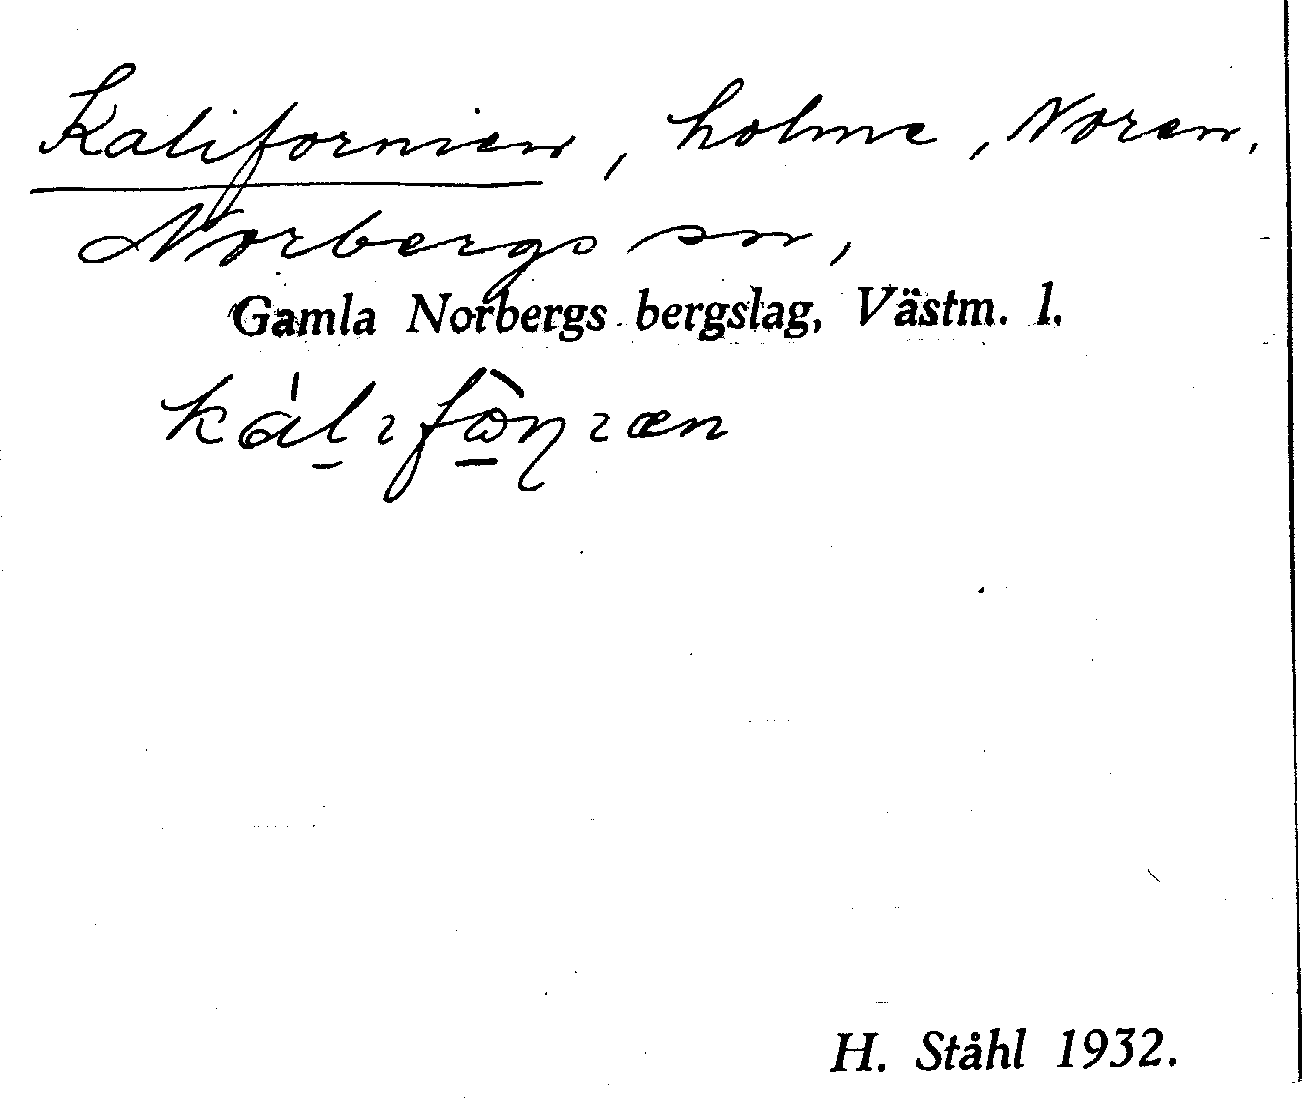 Kalifornien, holme, Noren,
Norbergs sn,
Gamla Norbergs bergslag, Västm. l.
H. Ståhl 1932.